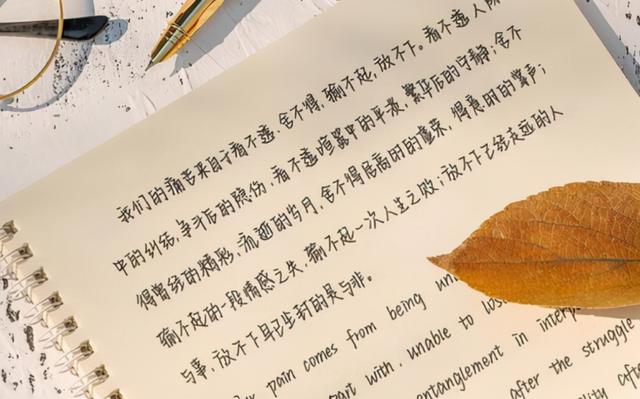 我们的痛苦来自于看不透、舍不得、输不起、放不下。看不透人
中的纠结,争斗后的隐伤,看不透喧嚣中的平淡,繁华后的宁静;舍不
得曾经的精彩、流逝的岁月,舍不得居高时的虚荣,得意时的掌声;
输不起的一段情感之失、输不起一次人生之败;放不下已经走远的人
与事,放不下早已尘封的是与非。
pain comes from being
part with, unable to
entanglement in
after the struggle